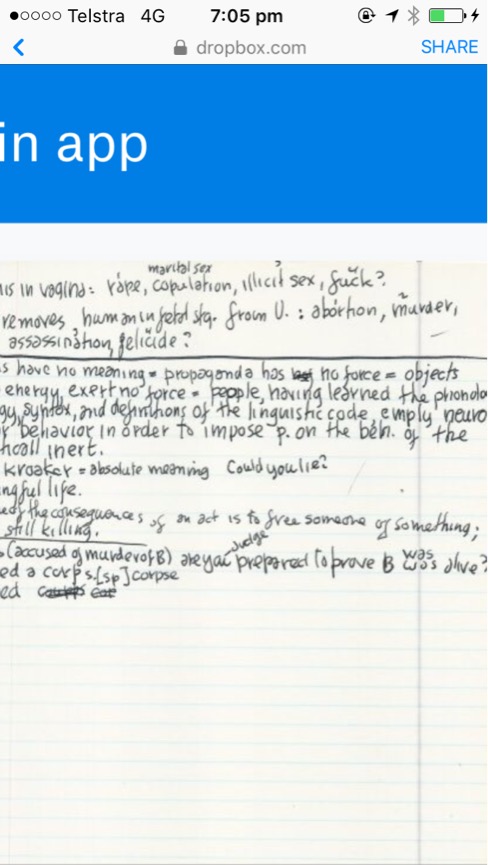 Telstra 4G 7:05 pm
dropbox.com SHARE
in app
marital sex
is in vagina: rape, copulation, illicit sex, fuck?
removes human in fetal stg. from U.: abortion, murder,
assassination, felicide?
s have no meaning = propaganda has no force = objects
energy, exert no force = people, having learned the phonolo
gy, syntax, and definitions of the linguistic code, employ neuro
behavior in order to impose p. on the beh. of the
call inert.
kroaker = absolute meaning Could you lie?
ngful life.
of the consequences of an act is to free someone of something;
still killing.
Judge
(accused of murder of B) are you prepared to prove B was alive?
ed a corps.[sp] corpse
ed